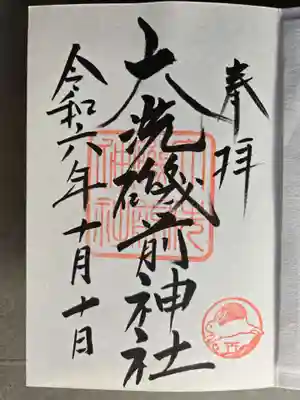 奉拝
大洗磯前神社
令和六年十月十日